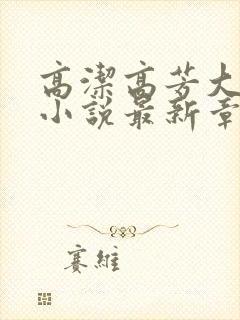 高潔高芳大
小說最新章
賽維